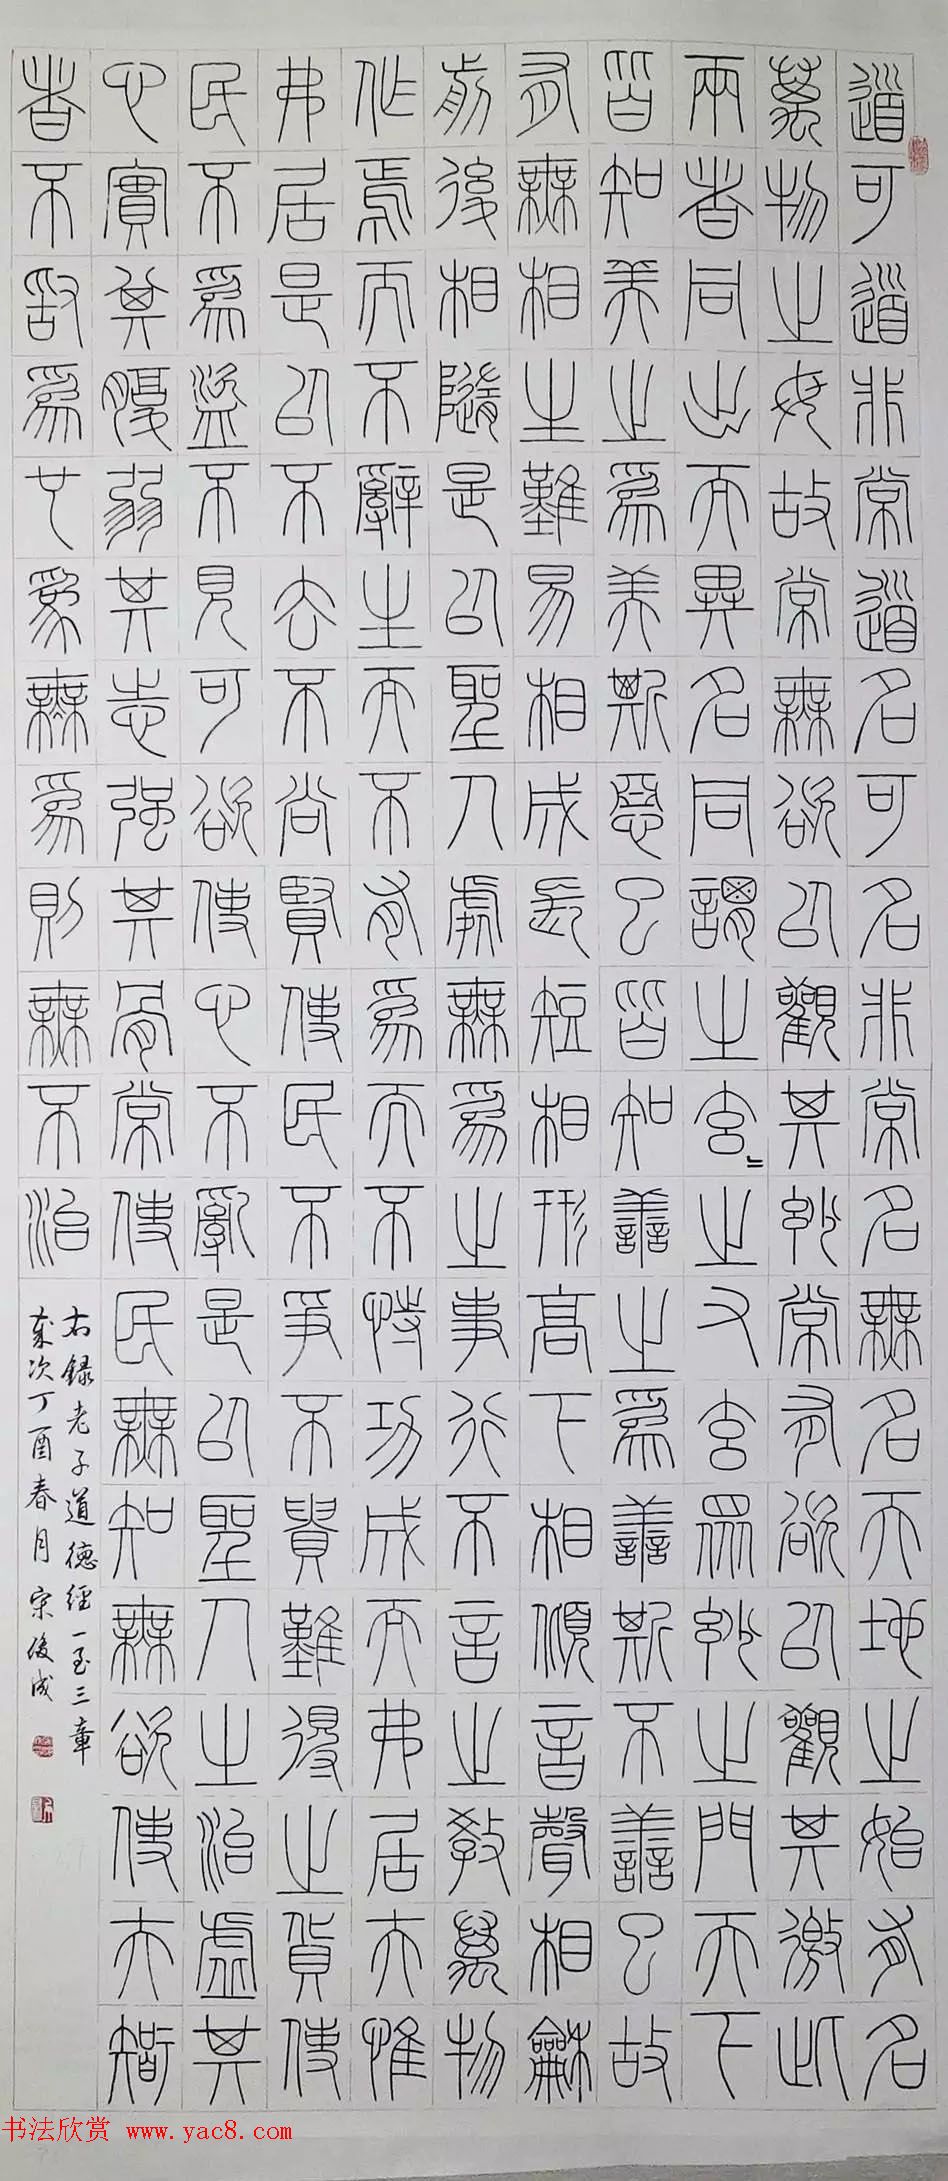 道可道非常道名可名非常名無名天地之始有名
萬物之母故常無欲以觀其妙常有欲以觀其徼此
兩者同出而異名同謂之玄〻之又玄眾妙之門天下
皆知美之為美斯惡已皆知善之為善斯不善已故
有無相生難易相成長短相形高下相傾音聲相龢
前後相隨是以聖人處無為之事行不言之教萬物
作焉而不辭生而不有為而不恃功成而弗居夫惟
弗居是以不去不尚賢使民不爭不貴難得之貨使
民不為盜不見可欲使心不亂是以聖人之治虛其
心實其腹弱其志強其骨常使民無知無欲使夫智
者不敢為也為無為則無不治
右錄老子道德經一至三章
歲次丁酉春月宋成
书法欣赏 www.yac8.com